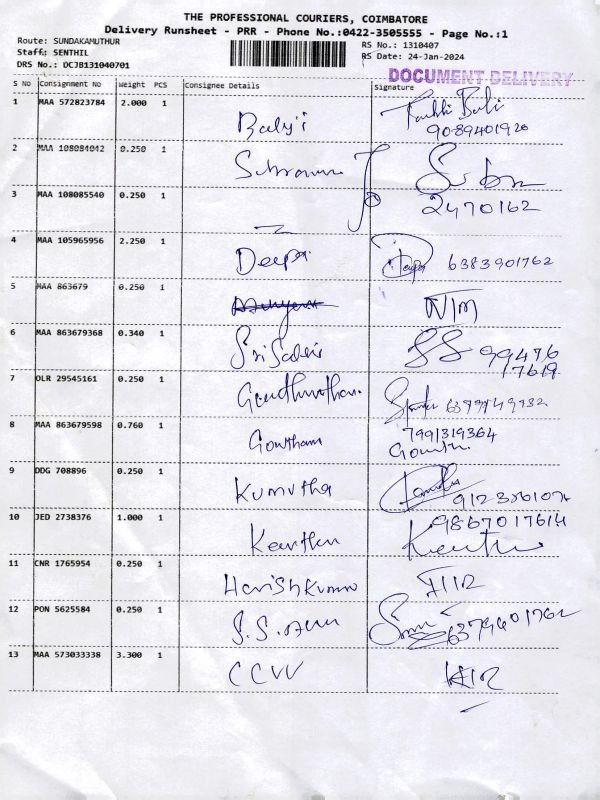 THE PROFESSIONAL COURIERS, COIMBATORE
Delivery Runsheet - PRR - Phone No.:0422-3505555 - Page No.:1
Route: SUNDAKAMUTHUR RS No.: 1310407
Staff: SENTHIL RS Date: 24-Jan-2024
DRS No.: DCJB131040701
DOCUMENT DELIVERY
S No Consignment No Weight PCS Consignee Details Signature
1 MAA 572823784 2.000 1 Balaji
9089401920
2 MAA 108084042 0.250 1
3 MAA 108085540 0.250 1 2470162
4 MAA 105965956 2.250 1 Deepa Deepa 6383901762
5 MAA 863679 0.250 1
6 MAA 863679368 0.340 1 99476
17619
7 OLR 29545161 0.250 1
8 MAA 863679598 0.760 1 Gowtham 7991319364
9 DDG 708896 0.250 1 Kumutha
10 JED 2738376 1.000 1 9867017614
11 CNR 1765954 0.250 1 Harishkumar
12 PON 5625584 0.250 1 6379601762
13 MAA 573033338 3.300 1 CCVV